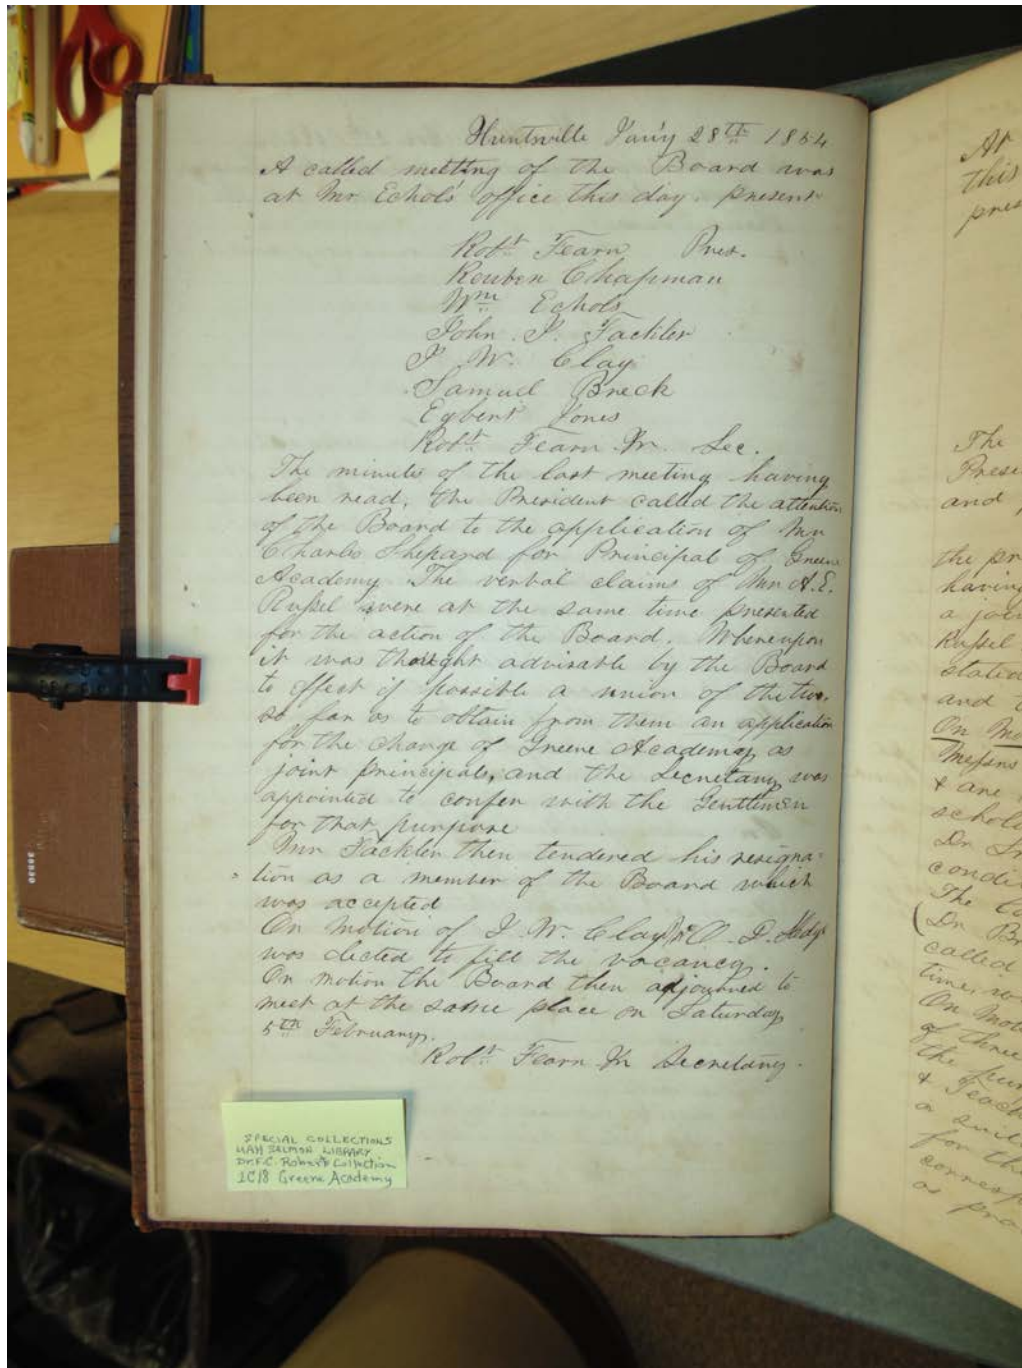 Huntsville Jan'y 28th 1854
A called meeting of the Board was
at Mr Echols' office this day. present
Robt Fearn Pres.
Reuben Chapman
Wm Echols
John J. Fackler
J W. Clay
Samuel Breck
Egbert Jones
Robt Fearn Jr. Sec.
The minutes of the last meeting having
been read, the President called the attention
of the Board to the application of Mr
Charles Shepard for Principal of Greene
Academy. The verbal claims of Mr A.E.
Russel were at the same time presented
for the action of the Board. Whereupon
it was thought advisable by the Board
to effect if possible a union of the two,
so far as to obtain from them an application
for the charge of Greene Academy, as
joint principals, and the Secretary was
appointed to confer with the Gentlemen
for that purpose
Mr Fackler then tendered his resigna-
tion as a member of the Board which
was accepted
On motion of J. W. Clay
was elected to fill the vacancy.
On motion the Board then adjourned to
meet at the same place on Saturday
5th February.
Robt Fearn Jr Secretary.
SPECIAL COLLECTIONS
UAH SALMON LIBRARY
Dr. F.C. Roberts Collection
2C/8 Greene Academy
At
this
The
and
the
having
a
Russel
and
On
Messrs
& are
Dr
The
(Dr
called
time,
On
of three
the
&
a
for the
as